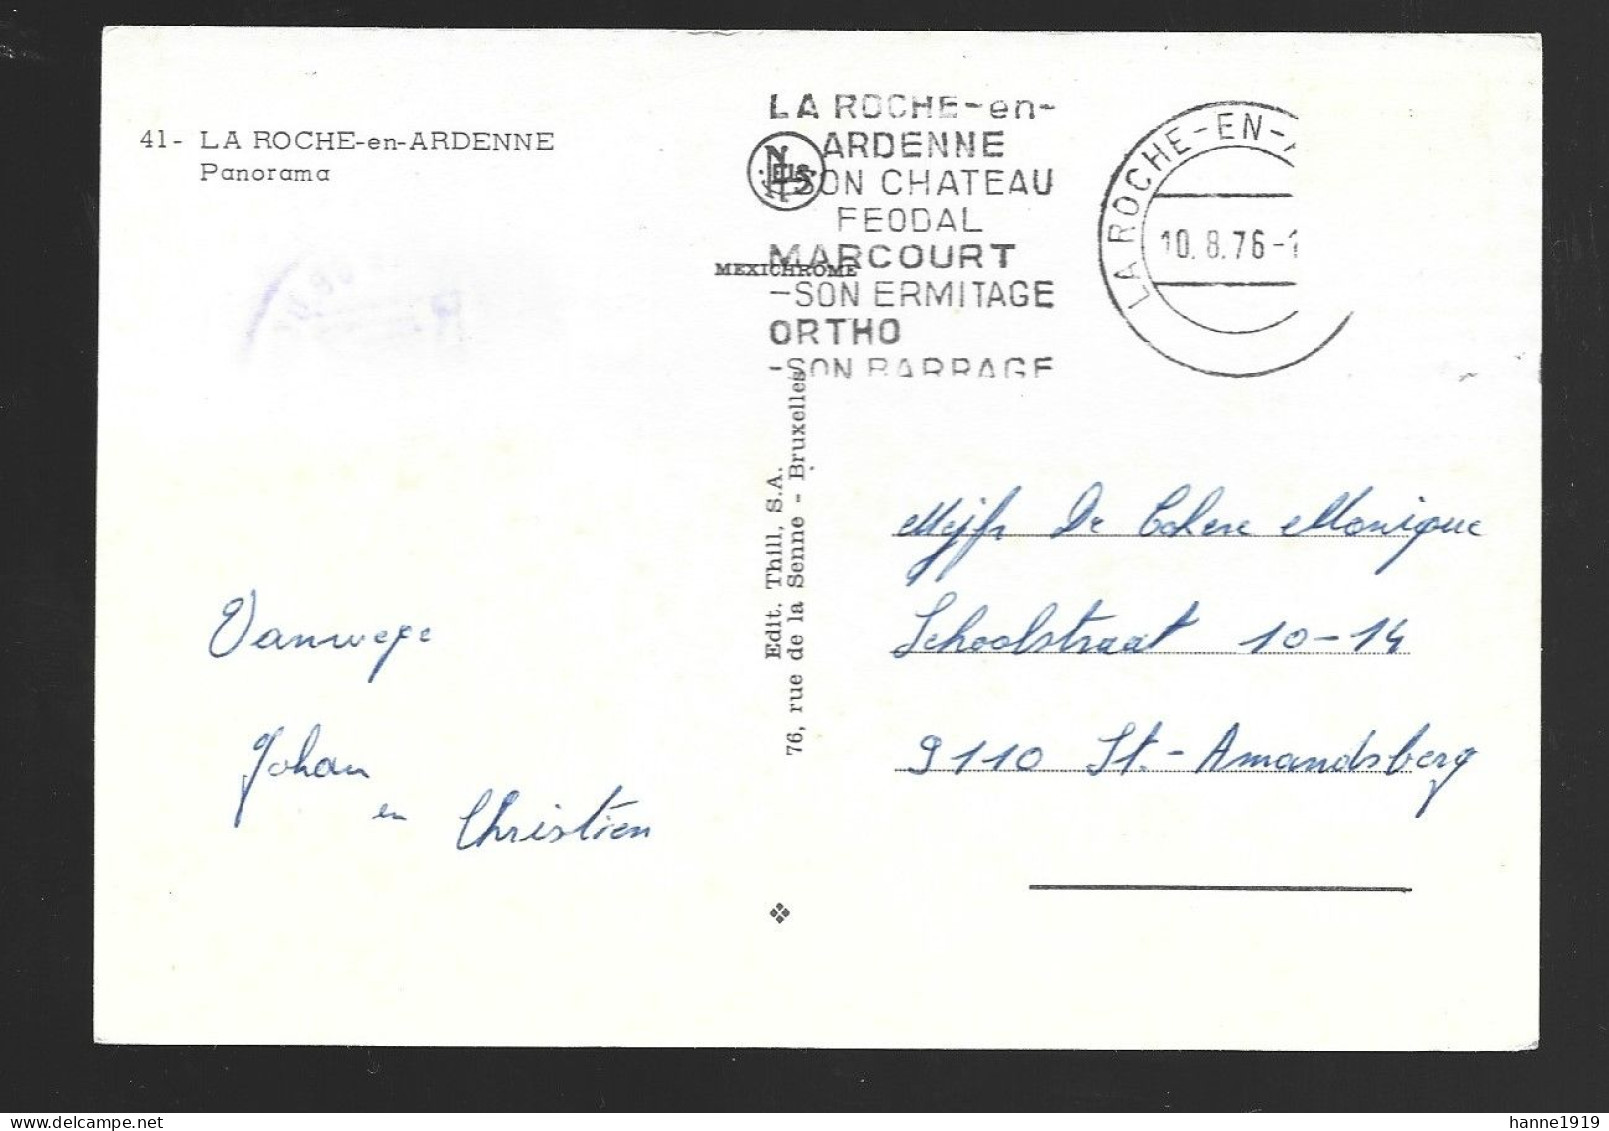 41- LA ROCHE-en-ARDENNE
Panorama
LA ROCHE-en-
ARDENNE
-SON CHATEAU
FEODAL
MARCOURT
-SON ERMITAGE
ORTHO
-SON BARRAGE
NELS
MEXICHROME
LA ROCHE-EN-
10.8.76-1
Edit. Thill, S.A.
76, rue de la Senne - Bruxelles
Mejfr De Cohere Monique
Schoolstraat 10-14
9110 St.-Amandsberg
Vanwege
Johan
en
Christien
hanne1919